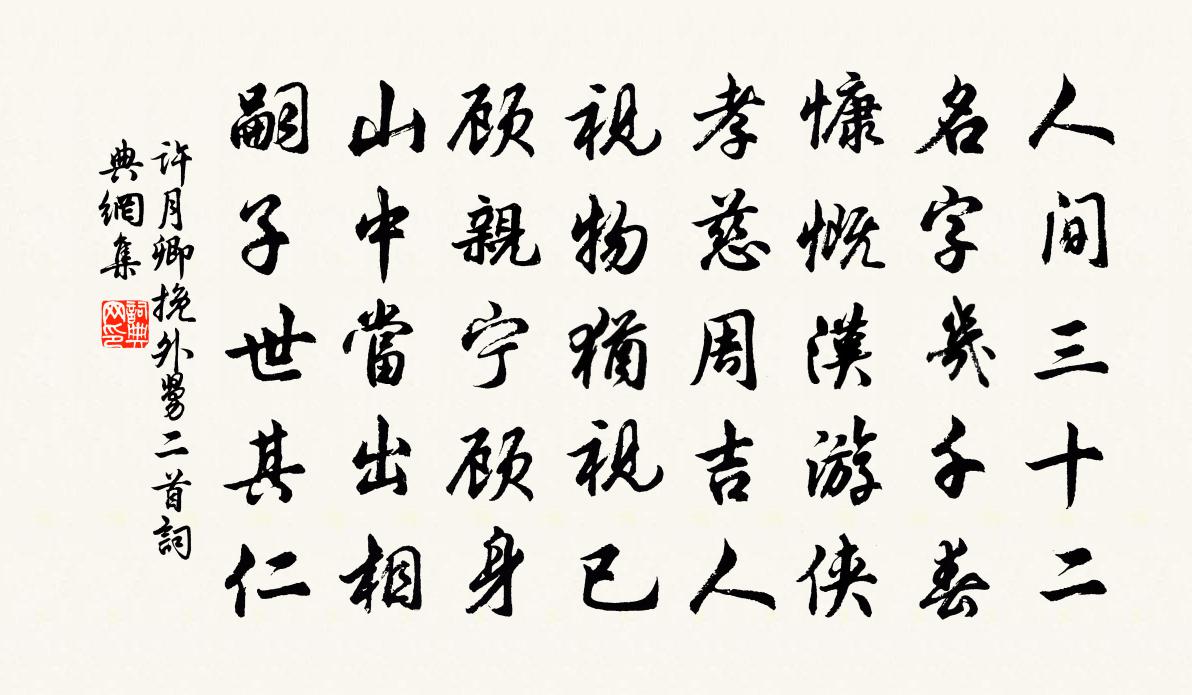 人间三十二
名字几千春
慷慨漢游侠
孝慈周吉人
視物猶視已
顾親宁顾身
山中當出相
嗣子世其仁
许月卿挽外舅二首詞
典網集
詞典
网印